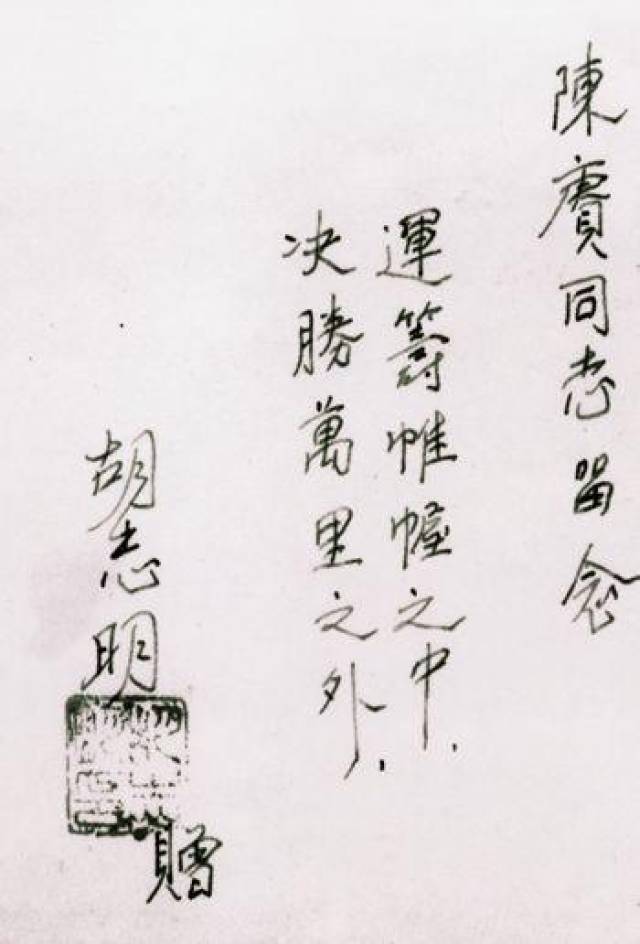 陳賡同志留念
運籌帷幄之中.
決勝萬里之外.
胡志明
贈